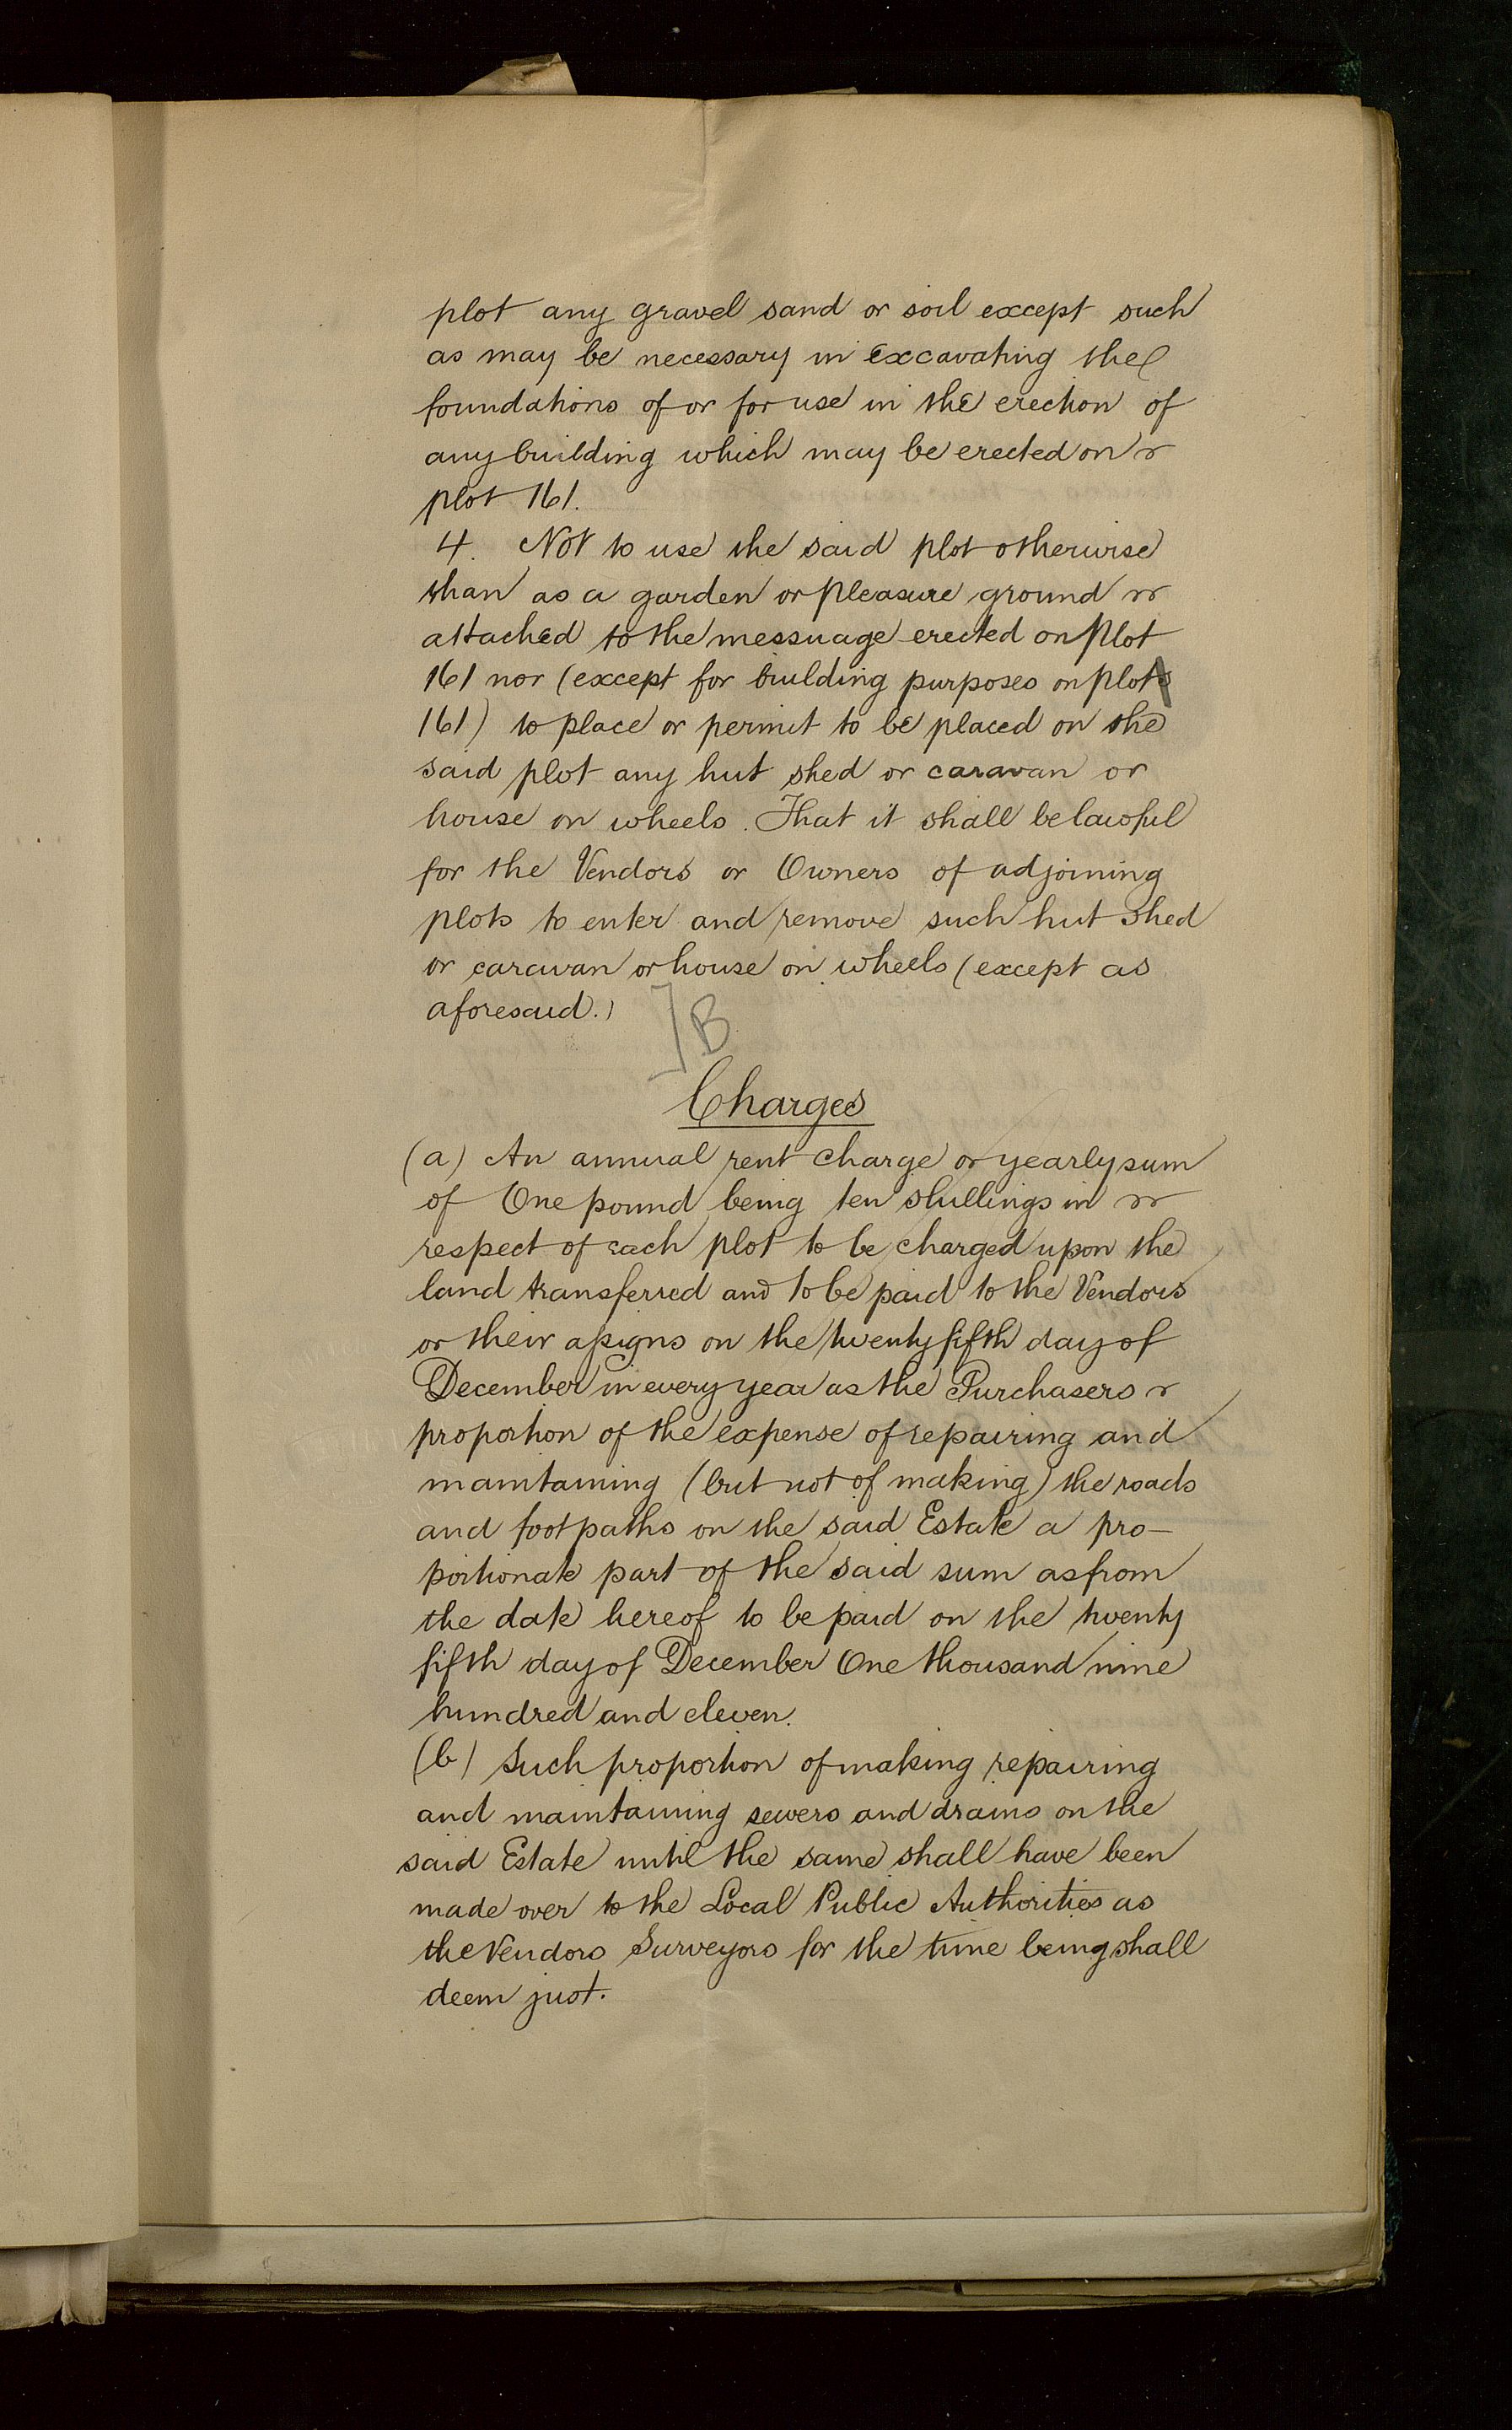 plot any gravel sand or soil except such
as may be necessary in excavating the
foundations of or for use in the erection of
any building which may be erected on
plot 161.
4. Not to use the said plot otherwise
than as a garden or pleasure ground
attached to the messuage erected on plot
161 nor (except for building purposes on plot
161) to place or permit to be placed on the
said plot any hut shed or caravan or
house on wheels. That it shall be lawful
for the Vendors or Owners of adjoining
plots to enter and remove such hut shed
or caravan or house on wheels (except as
aforesaid.)
]B
Charges
(a) An annual rent charge or yearly sum
of One pound being ten shillings in
respect of each plot to be charged upon the
land transferred and to be paid to the Vendors
or their assigns on the twenty fifth day of
December in every year as the Purchasers
proportion of the expense of repairing and
maintaining (but not of making) the roads
and footpaths on the said Estate a pro-
portionate part of the said sum as from
the date hereof to be paid on the twenty
fifth day of December One thousand nine
hundred and eleven.
(b) Such proportion of making repairing
and maintaining sewers and drains on the
said Estate until the same shall have been
made over to the Local Public Authorities as
the Vendors Surveyors for the time being shall
deem just.